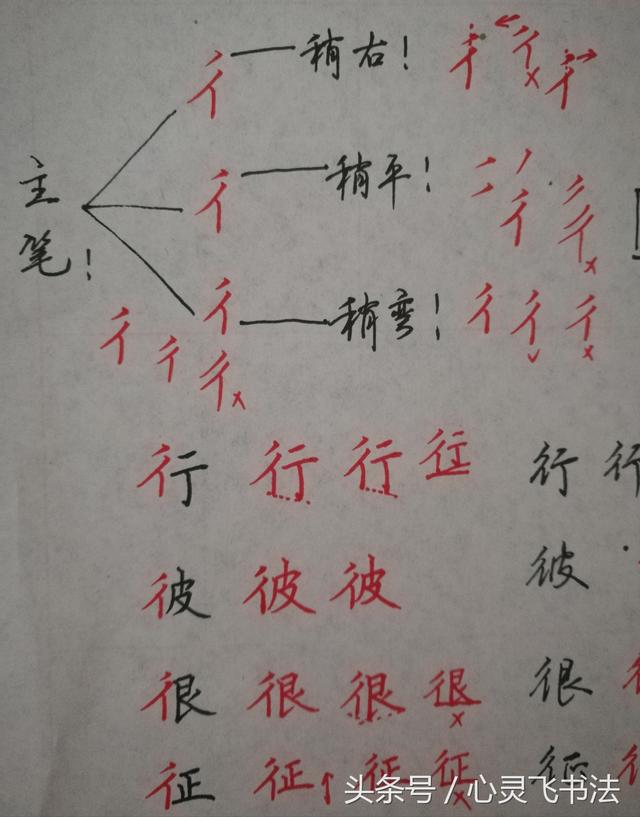 彳 稍右! 彳 彳 彳
主笔!
彳 稍平! 彳
彳 稍弯! 彳 彳 彳
彳 彳 彳
行 行 行 行 行 行
彼 彼 彼 彼
很 很 很 很 很
征 征 征 征 征
头条号/心灵飞书法